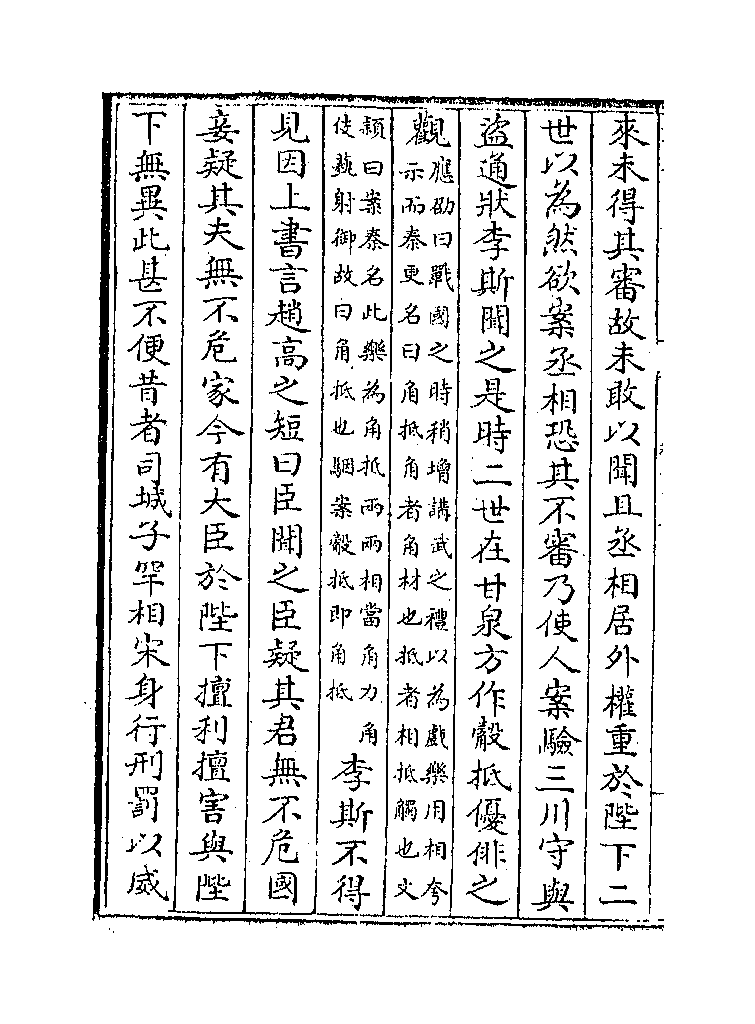 來未得其審故未敢以聞且丞相居外權重於陛下二
世以為然欲案丞相恐其不審乃使人案驗三川守與
盜通狀李斯聞之是時二世在甘泉方作觳抵優俳之
觀應劭曰戰國之時稍增講武之禮以為戲樂用相夸
示而秦更名曰角抵角者角材也抵者相抵觸也文
穎曰案秦名此樂為角抵兩兩相當角力角
使藝射御故曰角抵也駰案觳抵即角抵李斯不得
見因上書言趙高之短曰臣聞之臣疑其君無不危國
妾疑其夫無不危家今有大臣於陛下擅利擅害與陛
下無異此甚不便昔者司城子罕相宋身行刑罰以威